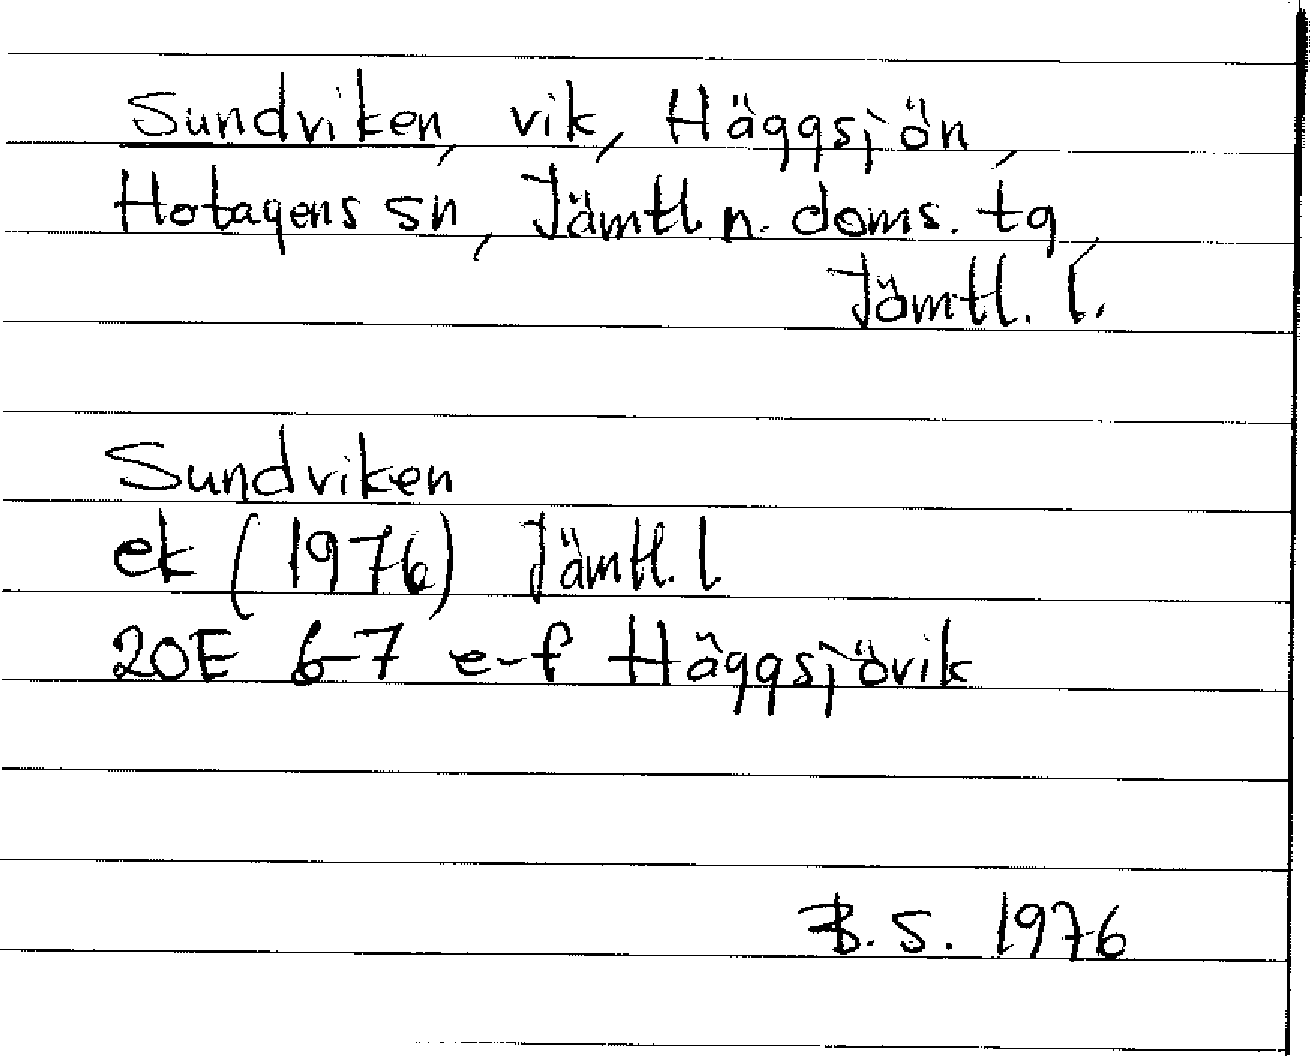 Sundviken, vik, Häggsjön,
Hotagens sn, Jämtl. n. doms. tg,
Jämtl. l.
Sundviken
ek (1976) Jämtl. l
20E 6-7 e-f Häggsjövik
B. S. 1976